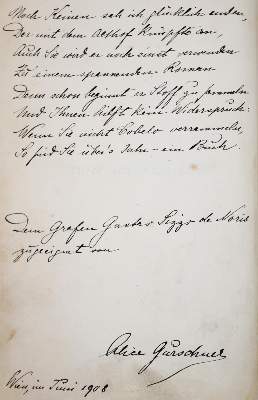 Noch Keinen sah ich glücklich enden,
Der mit dem Asthof Knüpfte an,
Auch Sie wird er noch einst verwenden
Zu einem spannenden Roman.
Denn schon beginnt er Stoff zu sammeln
Und Ihnen hilft kein Widerspruch:
Wenn Sie nicht verrammeln,
So sind Sie über's Jahr – ein Buch.
Dem Grafen Gustav Sizzo de Noris
zugeeignet von
Alice Gurschner
Wien, im Juni 1908